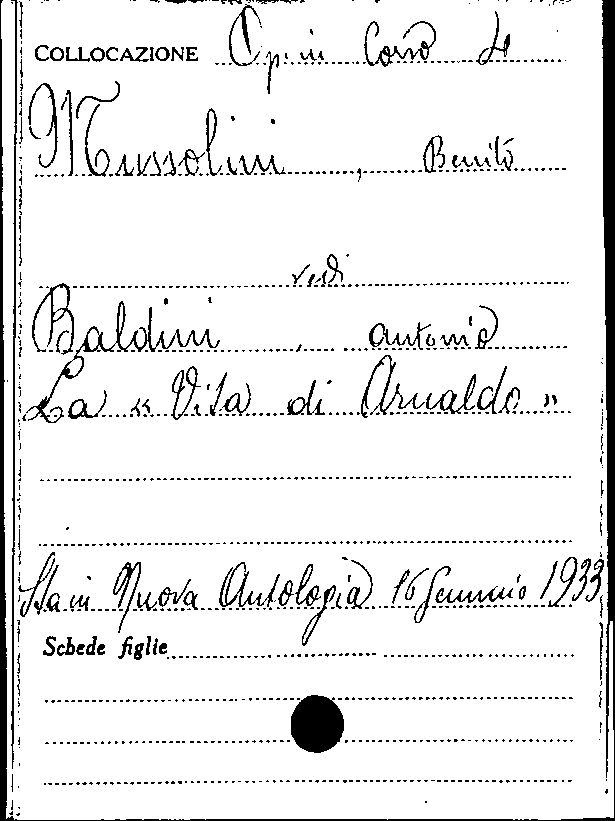 COLLOCAZIONE Op. in Corso
Mussolini, Benito
vedi
Baldini, Antonio
La « Vita di Arnaldo »
Sta in Nuova Antologia 16 Gennaio 1933
Schede figlie